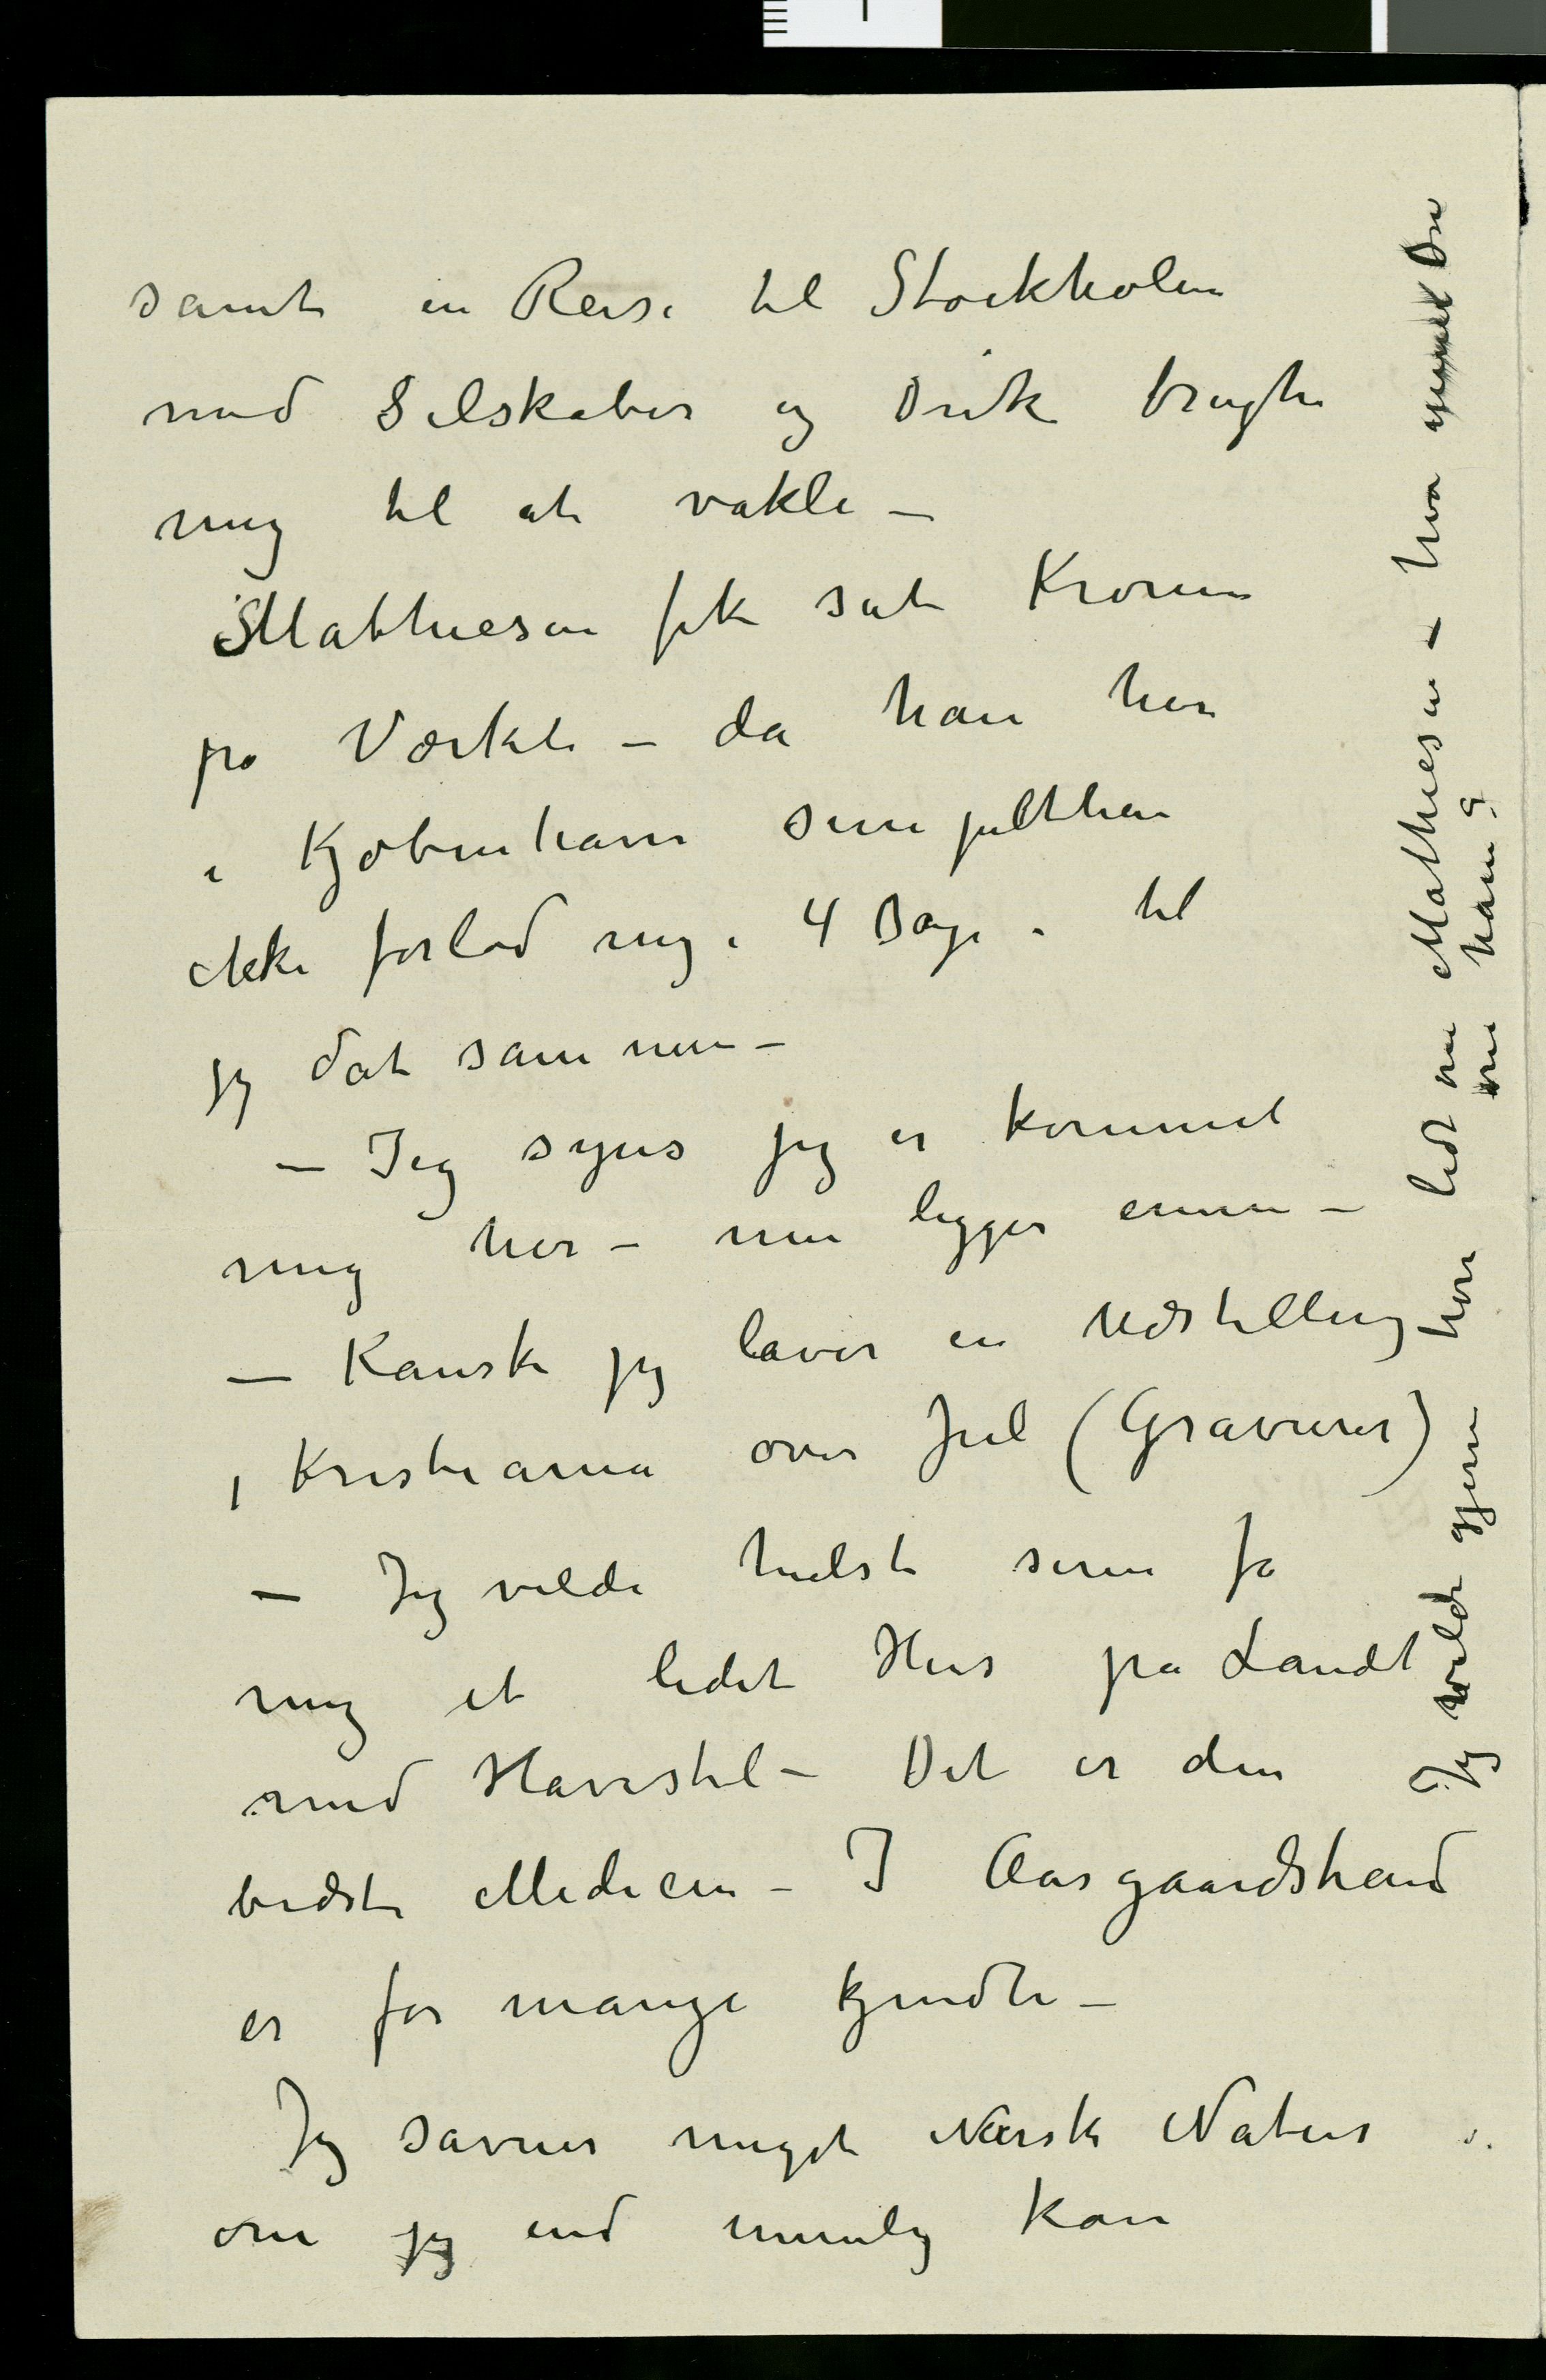 samt en Reise til Stockholm
med Selskaber og Drik bragte
mig til at vakle –
Mathiesen fik sat Kronen
på Værket – da han her
i Kjøbenhavn simpelthen
ikke forlod mig i 4 Dage – til
jeg dat sammen –
– Jeg synes jeg er kommet
mig her – men ligger ennu –
– Kanske jeg laver en Udstilling
i Kristiania over Jul (Gravurer)
– Jeg vilde helst sinu få
mig et lidet Hus på Landet
med Havestel – Det er den
bedste Medicin – I Aasgaardstrand
er for mange kjendte –
Jeg savner meget Norsk Natur
om jeg end umulig kan
Jeg vilde gjerne høre lidt om Mathiesen – hva Du
om ham?